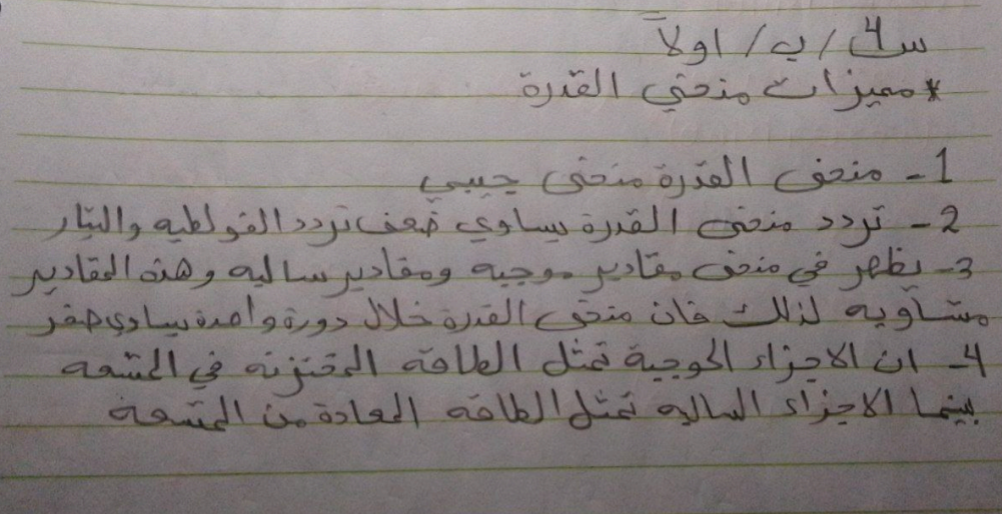 س4/ ب/ اولاً
* مميزات منحني القدرة
1- منحنى القدرة منحنى جيبي
2- تردد منحنى القدرة يساوي ضعف تردد الفولطيه والتيار
3- يظهر في منحنى مقادير موجبه ومقادير سالبه وهذه المقادير
متساويه لذلك فان منحنى القدرة خلال دورة واحدة يساوي صفر
4- ان الاجزاء الموجبة تمثل الطاقه المختزنه في المتسعه
بينما الاجزاء السالبه تمثل الطاقه المعادة من المتسعه